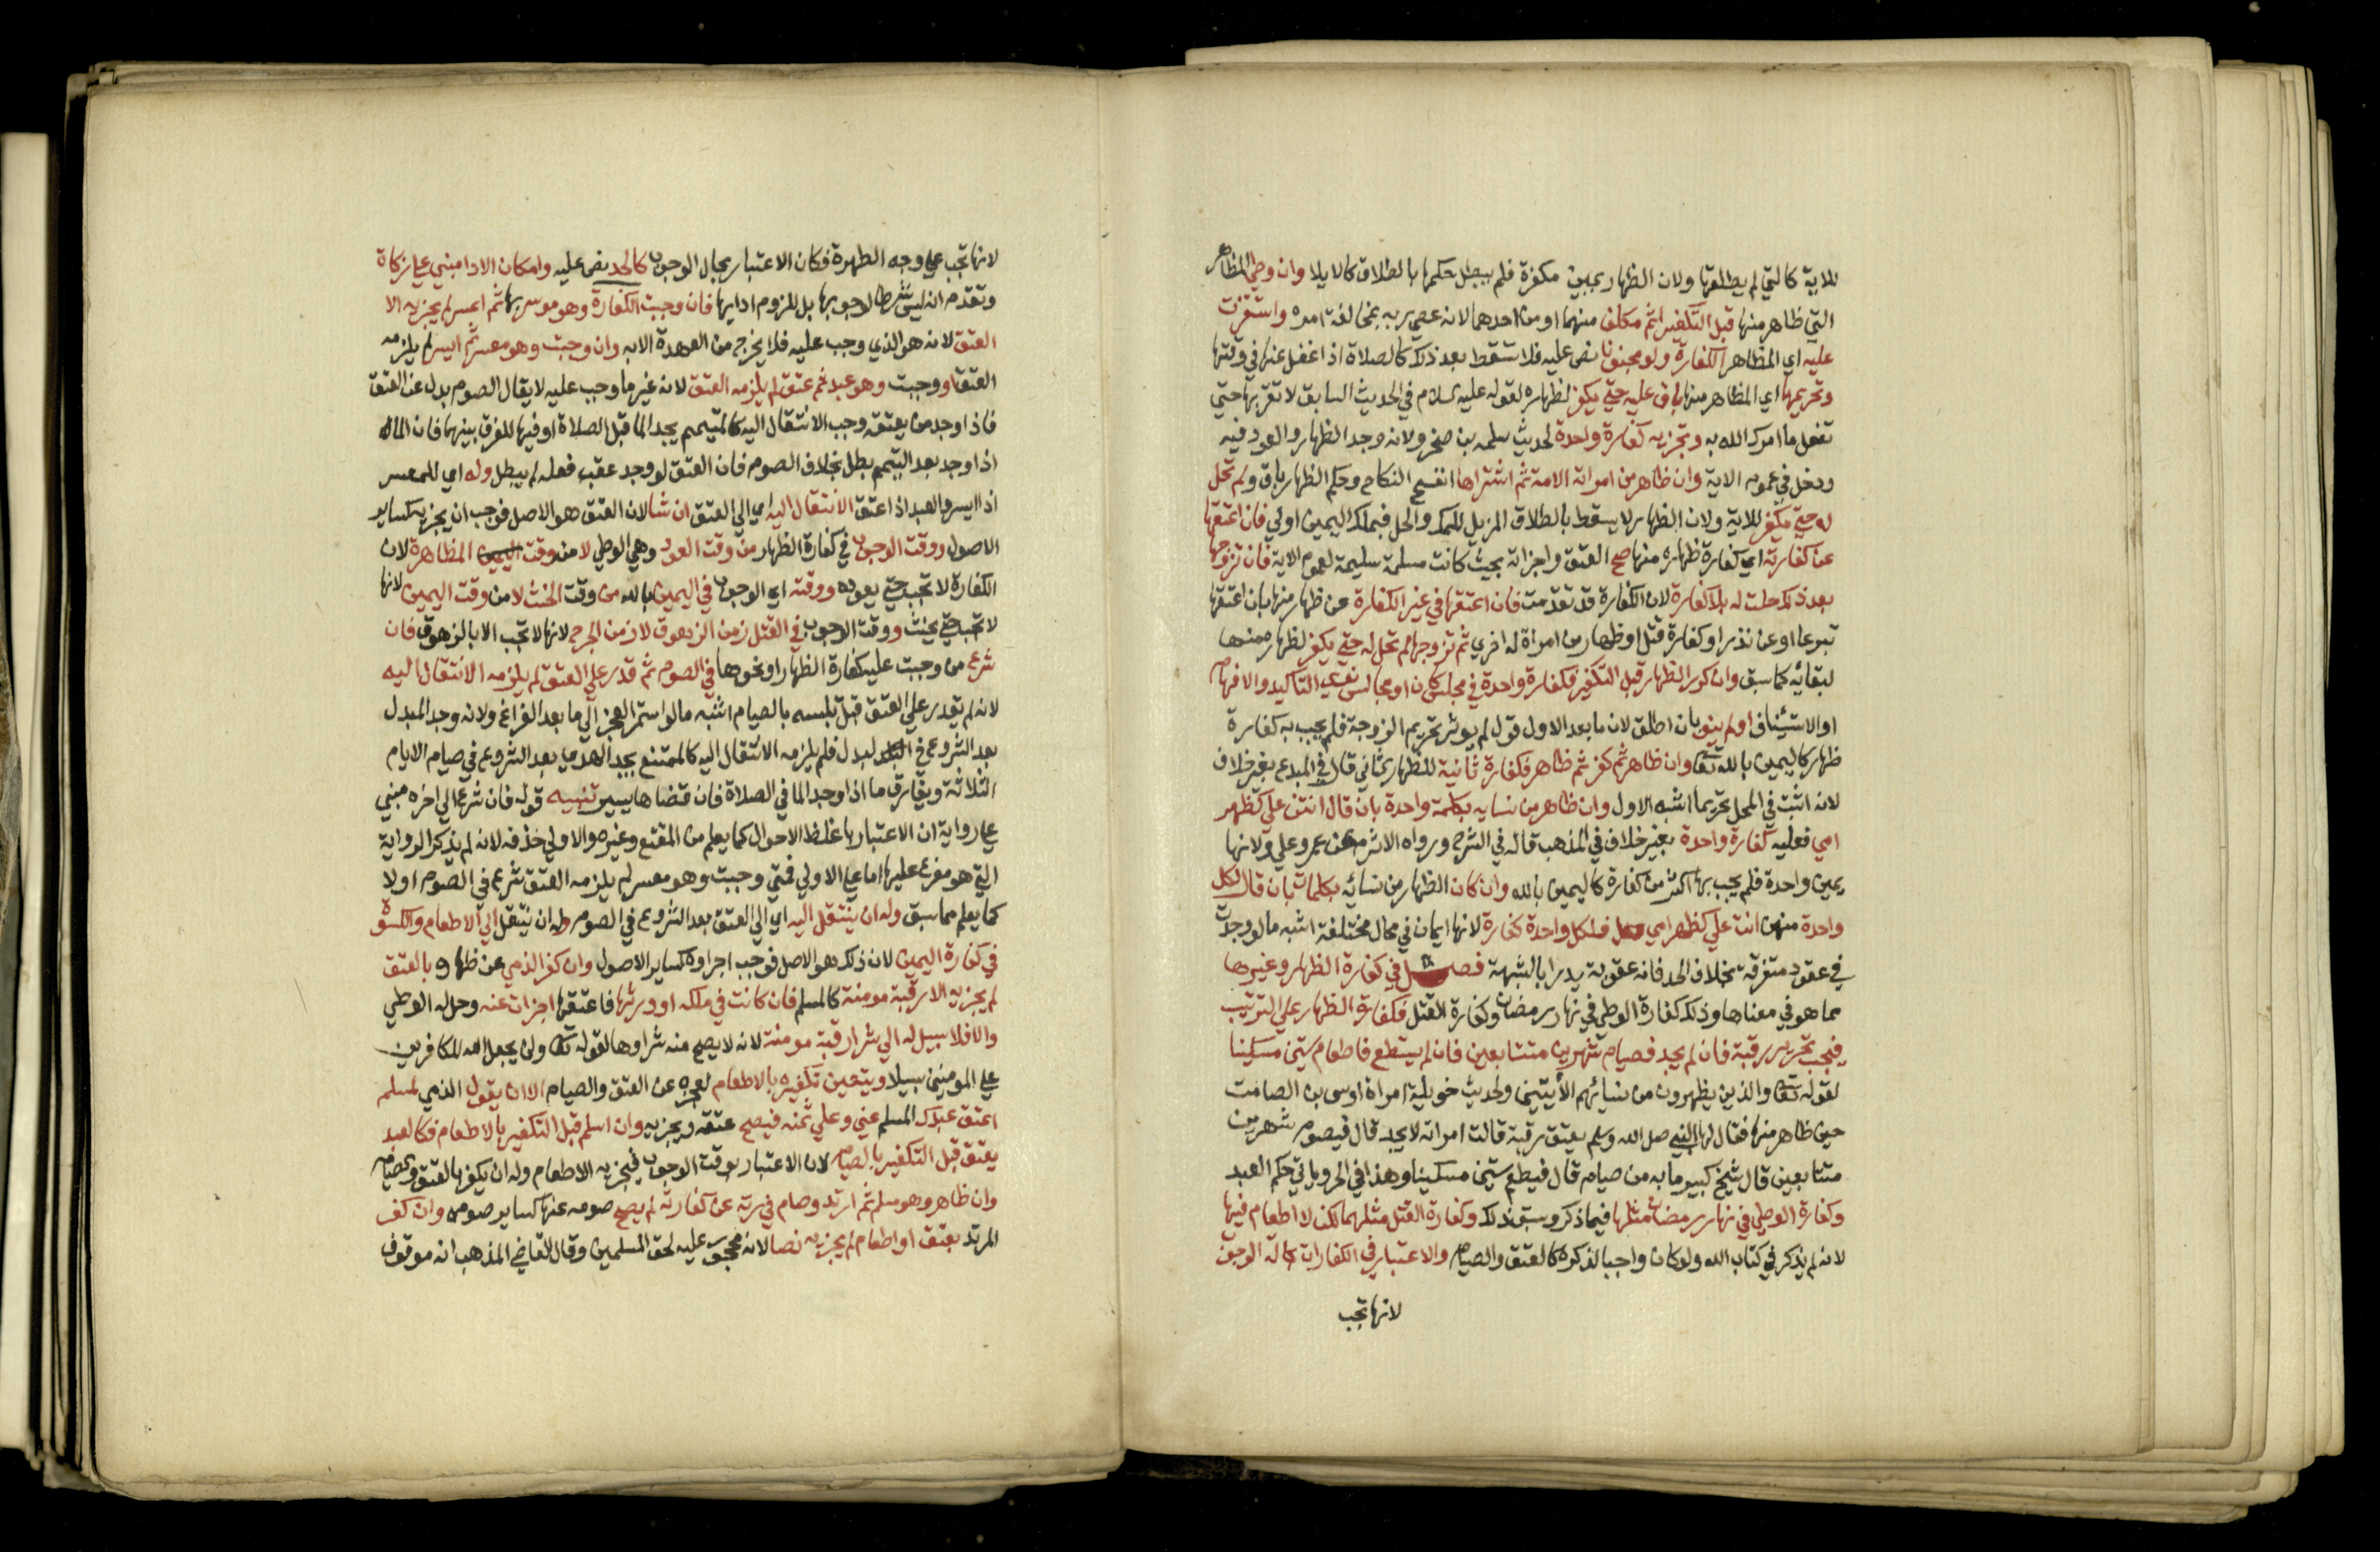 للاية كالتي لم يطلقها ولان الظهار يمين مكفرة فلم يبطل حكمها بالطلاق كالايلا وان وطي المظاهر
التي ظاهر منها قبل التكفير اثم مكلف منهما او من احدهما لانه عصى ربه بمخالفة امره واستقرت
عليه اي المظاهر الكفارة ولو مجنونا نص عليه فلا تسقط بعد ذلك كالصلاة اذا غفل عنها في وقتها
وتحريمها اي المظاهر منها باق عليه حتى يكفر لظهاره لقوله عليه السلام في الحديث السابق لا تقربها حتى
تفعل ما امرك الله به وتجزيه كفارة واحدة لحديث سلمه بن صخر ولانه وجد الظهار والعود فيه
ودخل في عموم الاية وان ظاهر من امراته الامة ثم اشتراها انفسخ النكاح وحكم الظهار باق ولم تحل
له حتى يكفر للاية ولان الظهار لا يسقط بالطلاق المزيل للملك والحل فبملك اليمين اولي فان اعتقها
عن كفارته اي كفارة ظهاره منها صح العتق واجزاته بحيث كانت مسلمة سليمة لعموم الاية فان تزوجها
بعد ذلك حلت له بلا كفارة لان الكفارة قد تقدمت فان اعتقها في غير الكفارة عن ظهار منها بان اعتقها
تبرعا او عن نذر او كفارة قتل او ظهار من امراة له اخري ثم تزوجها لم تحل له حتى يكفر لظهاره منها
لبقائه كما سبق وان كرر الظهار قبل التكفير فكفارة واحدة في مجلس كان او مجالس نوى التاكيد والافهام
او الاستيناف او لم ينو بان اطلق لان ما بعد الاول قول لم يوثر تحريم الزوجة فلم يجب به كفارة
ظهار كاليمين بالله تعا وان ظاهر ثم كفر ثم ظاهر فكفارة ثانية للظهار الثاني قال في المبدع بغير خلاف
لانه اثبت في المحل تحريما اشبه الاول وان ظاهر من نسايه بكلمة واحدة بان قال انتن علي كظهر
امي فعليه كفارة واحدة بغير خلاف في المذهب قاله في الشرح ورواه الاثرم عن عمر وعلي ولانها
يمين واحدة فلم يجب بها اكثر من كفارة كاليمين بالله وان كان الظهار من نسائه بكلمات بان قال لكل
واحدة منهن انت علي كظهر امي فلكل واحدة كفارة لانها ايمان في محال مختلفة اشبه ما لو وجدت
في عقود متفرقة بخلاف الحد فانه عقوبة يدرا بالشبهة فصل في كفارة الظهار وغيرها
مما هو في معناها وذلك كفارة الوطي في نهار رمضان وكفارة القتل فكفارة الظهار علي الترتيب
فيجب تحرير رقبة فان لم يجد فصيام شهرين متتابعين فان لم يستطع فاطعام ستين مسكينا
لقوله تعا والذين يظهرون من نسائهم الأيتين ولحديث خويلة امراة اوس بن الصامت
حين ظاهر منها فقال لها النبي صل الله وسلم يعتق رقبة قالت امراته لا يجد قال فيصوم شهرين
متتابعين قال شيخ كبير ما به من صيام قال فيطعم ستين مسكينا وهذا في الحر وياتي حكم العبد
وكفارة الوطي في نهار رمضان مثلها فيما ذكر وسبق ذلك وكفارة القتل مثلهما لكن لا اطعام فيها
لانه لم يذكر في كتاب الله ولو كان واجبا لذكره كالعتق والصيام والاعتبار في الكفارات بحالة الوجوب
لانها تجب
لانها تجب على وجه الطهرة فكان الاعتبار بحال الوجوب كالحد نص عليه وامكان الادا مبني علي زكاة
وتقدم انه ليس شرطا لوجوبها بل للزوم ادايها فان وجبت الكفارة وهو موسر بها ثم اعسر لم يجزيه الا
العتق لانه هو الذي وجب عليه فلا يخرج من العهدة الا به وان وجبت وهو معسر ثم ايسر لم يلزمه
العتق او وجبت وهو عبد ثم عتق لم يلزمه العتق لانه غير ما وجب عليه لا يقال الصوم بدل عن العتق
فاذا وجد من يعتقه وجب الانتقال اليه كالمتيمم يجد الما قبل الصلاة او فيها للفرق بينهما فان الماء
اذا وجد بعد التيمم بطل بخلاف الصوم فان العتق لو وجد عقب فعله لم يبطل وله اي للمعسر
اذا ايسر والعبد اذا عتق الانتقال اليه اي الي العتق ان شا لان العتق هو الاصل فوجب ان يجزيه كساير
الاصول ووقت الوجوب في كفارة الظهار من وقت العود وهي الوطي لا من وقت المظاهرة لان
الكفارة لا تجب حتى يعود ووقته اي الوجوب في اليمين بالله من وقت الحنث لا من وقت اليمين لانها
لا تجب حتى يحنث ووقت الوجوب في القتل زمن الزهوق لا زمن الجرح لانها لا تجب الا بالزهوق فان
شرع من وجبت عليه كفارة الظهار او نحوها في الصوم ثم قدر علي العتق لم يلزمه الانتقال اليه
لانه لم يقدر علي العتق قبل تلبسه بالصيام اشبه ما لو استمر العجز الي ما بعد الفراغ ولانه وجد المبدل
بعد الشروع في البدل فلم يلزمه الانتقال اليه كالمتمتع يجد الهدي بعد الشروع في صيام الايام
الثلاثة ويفارق ما اذا وجد الما في الصلاة فان قضاها يسير تنبيه قوله فان شرع الي اخره مبني
علي رواية ان الاعتبار باغلظ الاحوال كما يعلم من المقنع وغيره والاولي حذفه لانه لم يذكر الرواية
التي هو مفرع عليها اما علي الاولي فمتي وجبت وهو معسر لم يلزمه العتق شرع في الصوم اولا
كما يعلم مما سبق وله ان ينتقل اليه اي الي العتق بعد الشروع في الصوم وله ان ينتقل الي الاطعام والكسوة
في كفارة اليمين لان ذلك هو الاصل فوجب اجزاوه كساير الاصول وان كفر الذمي عن ظهاره بالعتق
لم يجزيه الا رقبة مومنة كالمسلم فان كانت في ملكه او ورثها فاعتقها اجزات عنه وحل له الوطي
والا فلا سبيل له الي شرا رقبة مومنة لانه لا يصح منه شراوها لقوله تعا ولن يجعل الله للكافرين
علي المومنين سبيلا ويتعين تكفيره بالاطعام لعجزه عن العتق والصيام الا ان يقول الذمي لمسلم
اعتق عبدك المسلم عني وعلي ثمنه فيصح عتقه ويجزيه وان اسلم قبل التكفير بالاطعام فكالعبد
يعتق قبل التكفير بالصيام لان الاعتبار بوقت الوجوب فيجزيه الاطعام وله ان يكفر بالعتق والصيام
وان ظاهر وهو مسلم ثم ارتد وصام في ردته عن كفارته لم يصح صومه عنها كساير صومه وان كفر
المرتد بعتق او اطعام لم يجزيه نصا لانه محجور عليه لحق المسلمين وقال القاضي المذهب انه موقوف